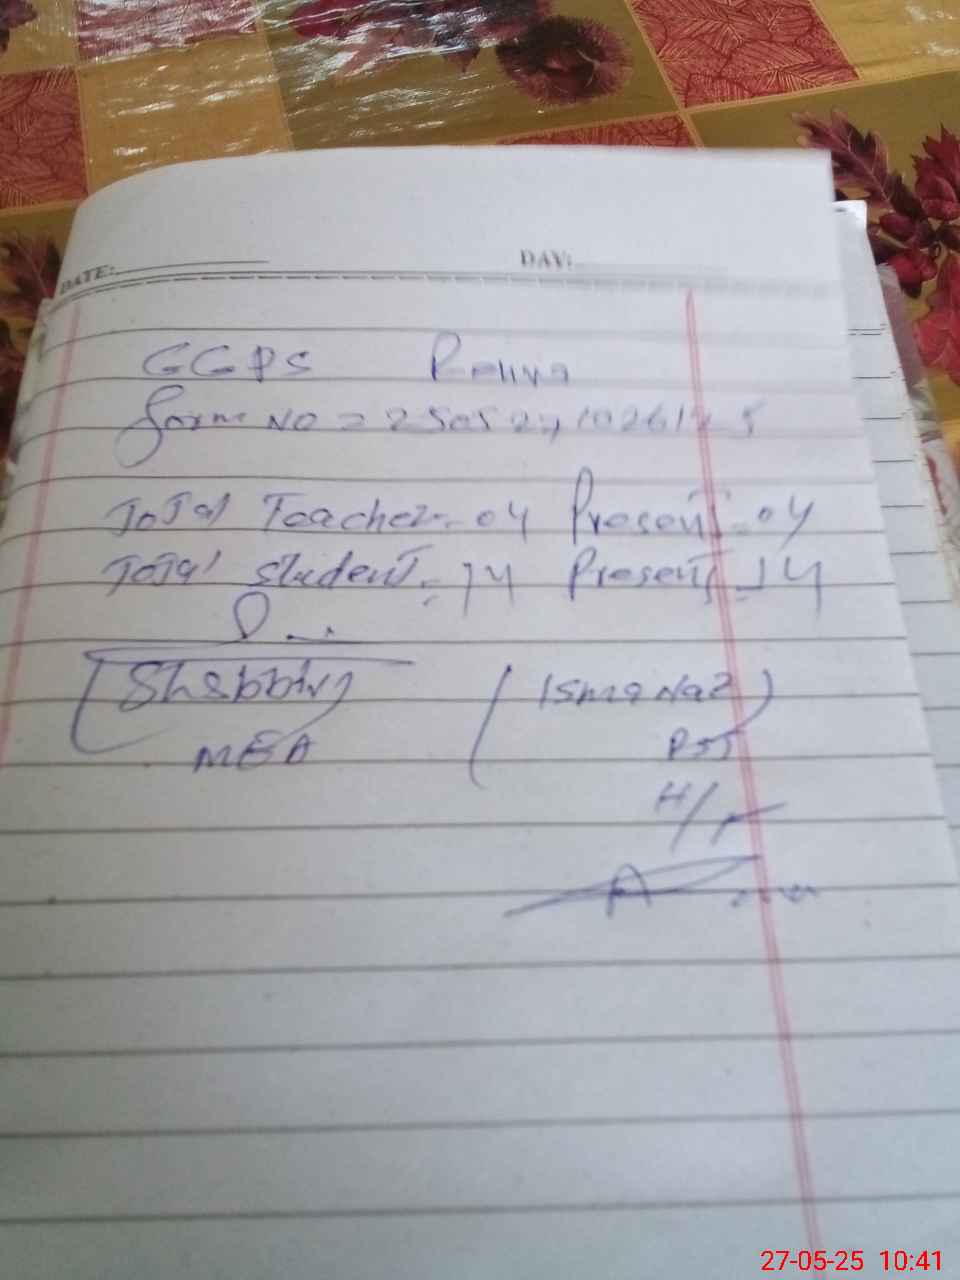 DATE: DAY:
GGPS Rehya
Form No = 250527102612 5
Total Teacher = 04 Present = 04
Total Student = 14 Present = 14
(Shabbir) (Isma Naz)
MEA PST
H/T
27-05-25 10:41